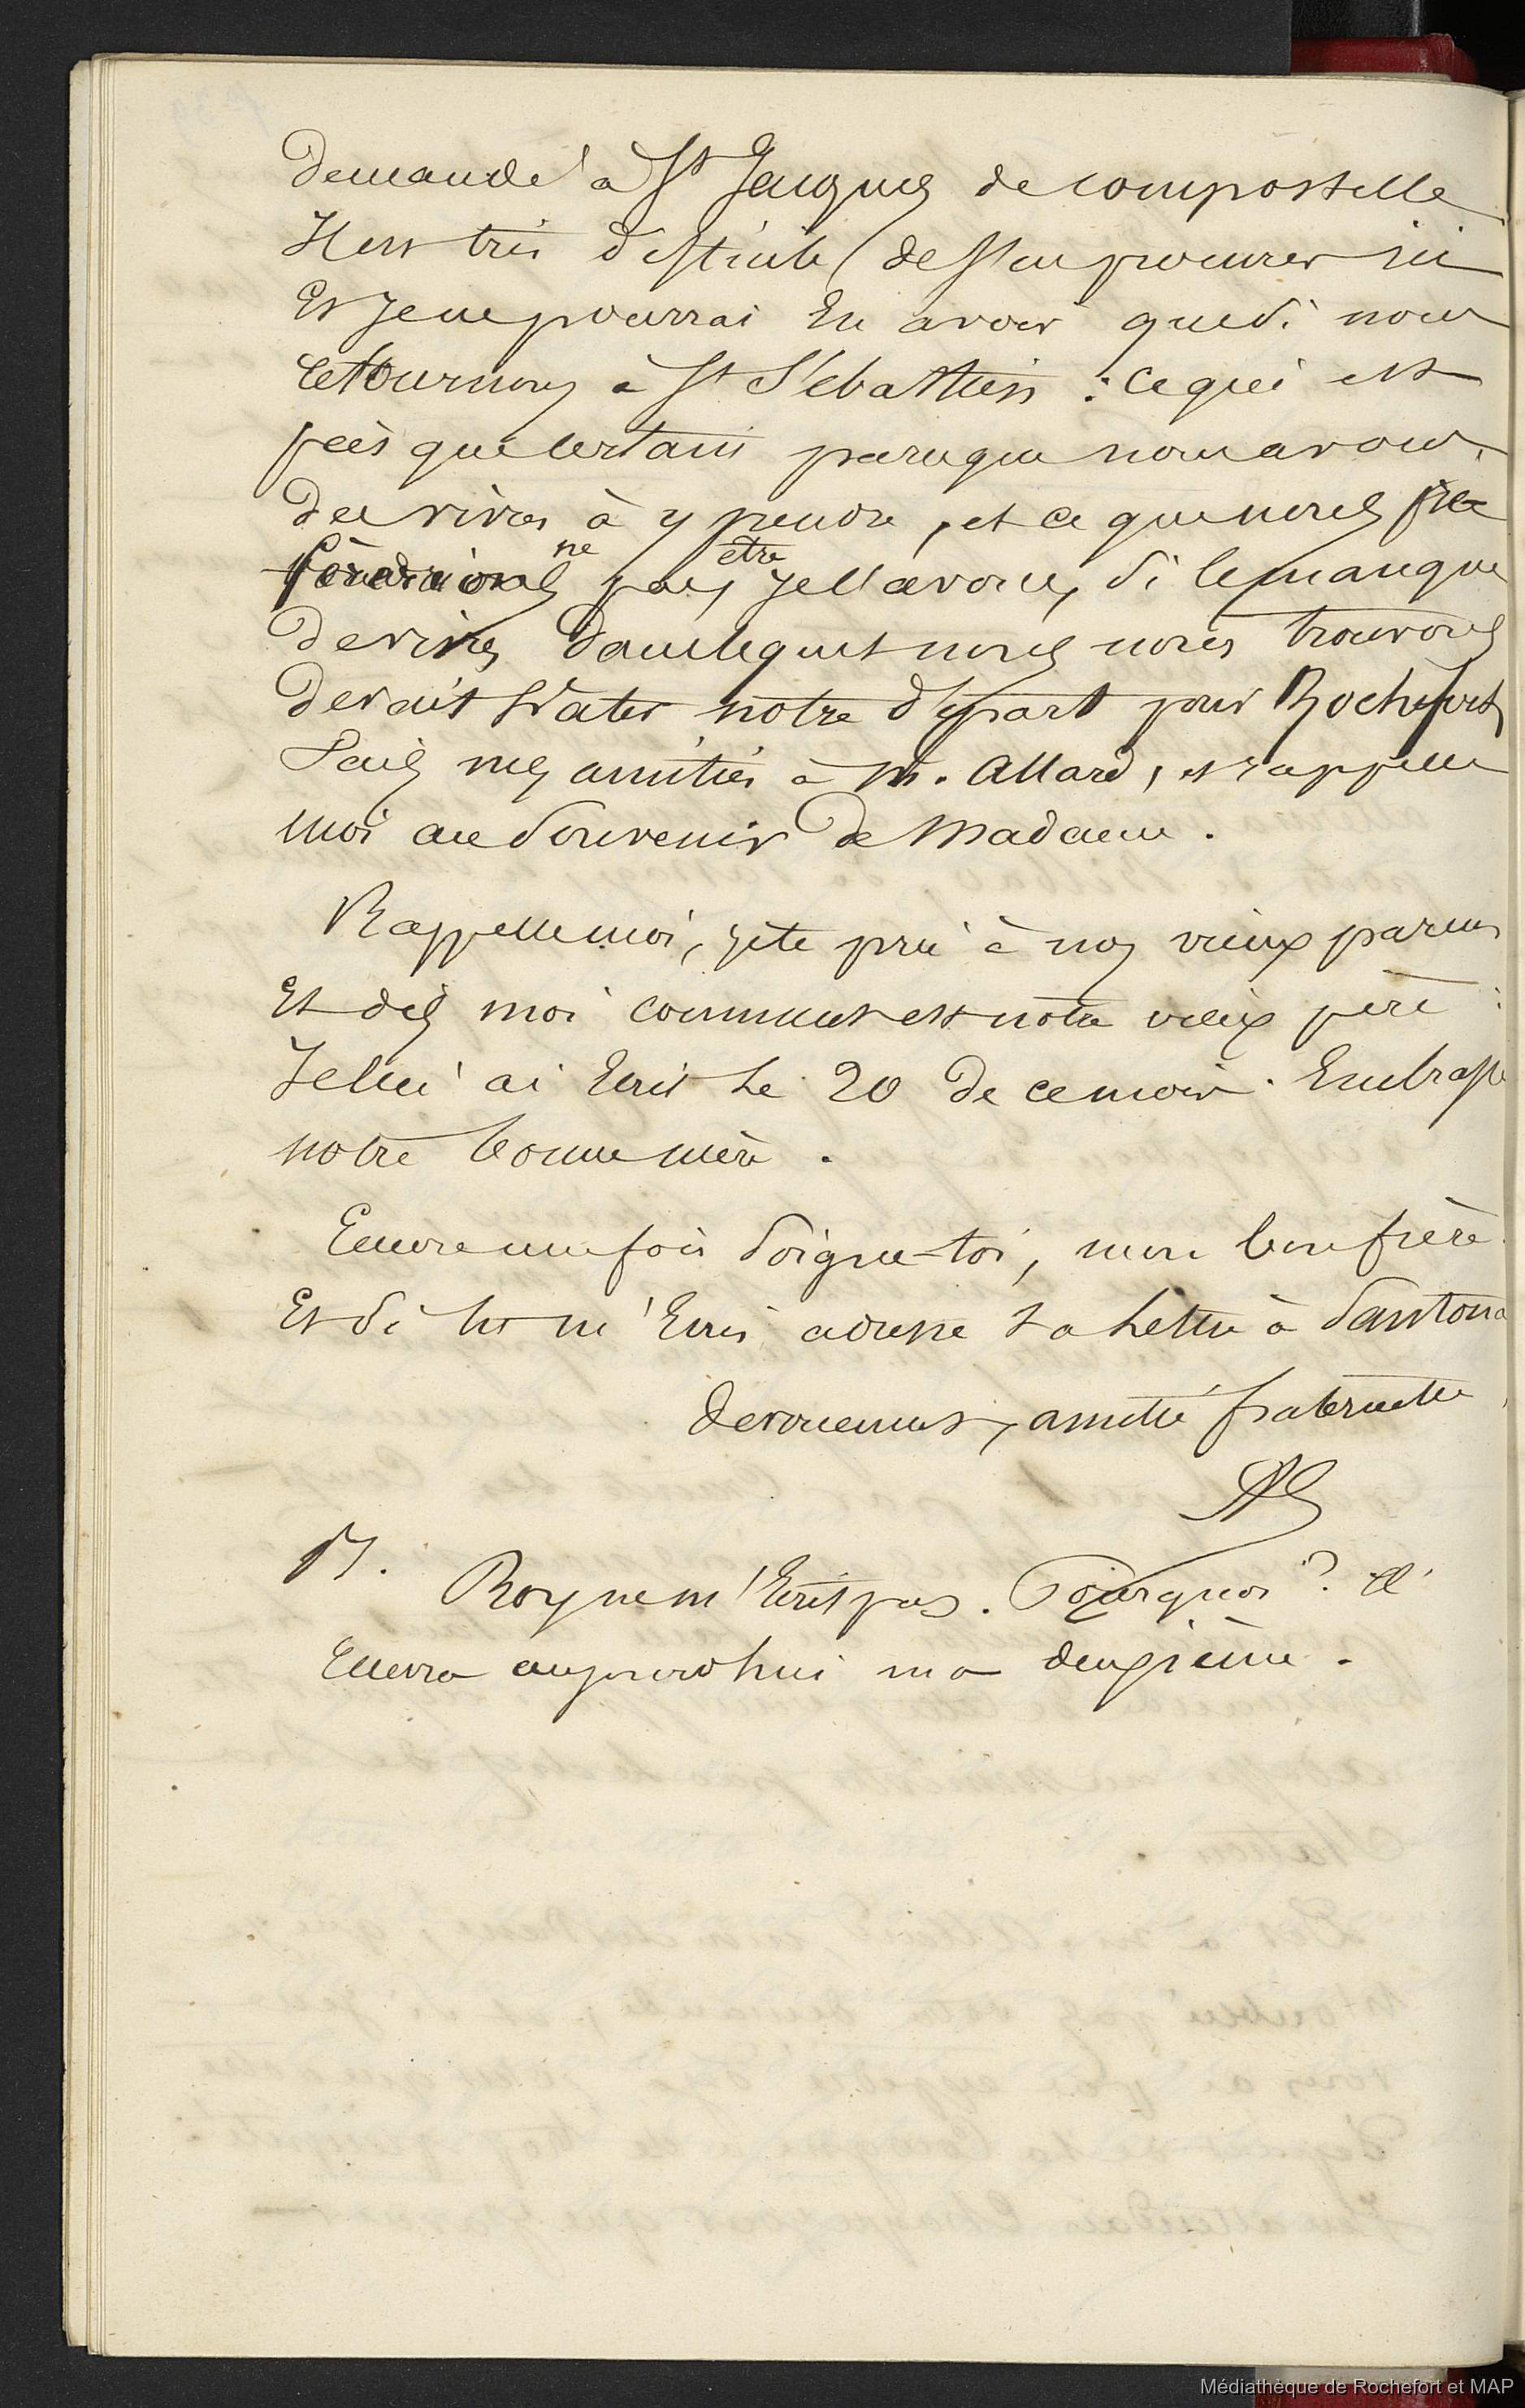 Demandé à St Jacques de compostelle
Il est très difficile de s'en procurer ici
Et je ne pourrai En avoir que si nous
retournons à St Sébastien : ce qui est
près que certain parce que nous avons
des vivres à y prendre, et ce que nous
ne pas être je l'avoue, si le manque
de vivres dans lequel nous nous trouvons
devait hater notre départ pour Rochefort
Fais mes amitiés à M. Allard, et rappelle
moi au souvenir de Madame.
Rappelle moi, je te prie à nos vieux parens
Et dis moi comment est notre vieux père :
Je lui ai Ecrit Le 20 de ce mois. Embrasse
notre bonne mère.
Encore une fois soigne-toi, mon bon frère.
Et si tu m'Ecris adresse ta Lettre à Santona
devouement, amitié fraternelle,
Roy ne m'Ecrit pas. Pourquoi ? Il
recevra aujourd'hui ma deuxième.
Médiathèque de Rochefort et MAP